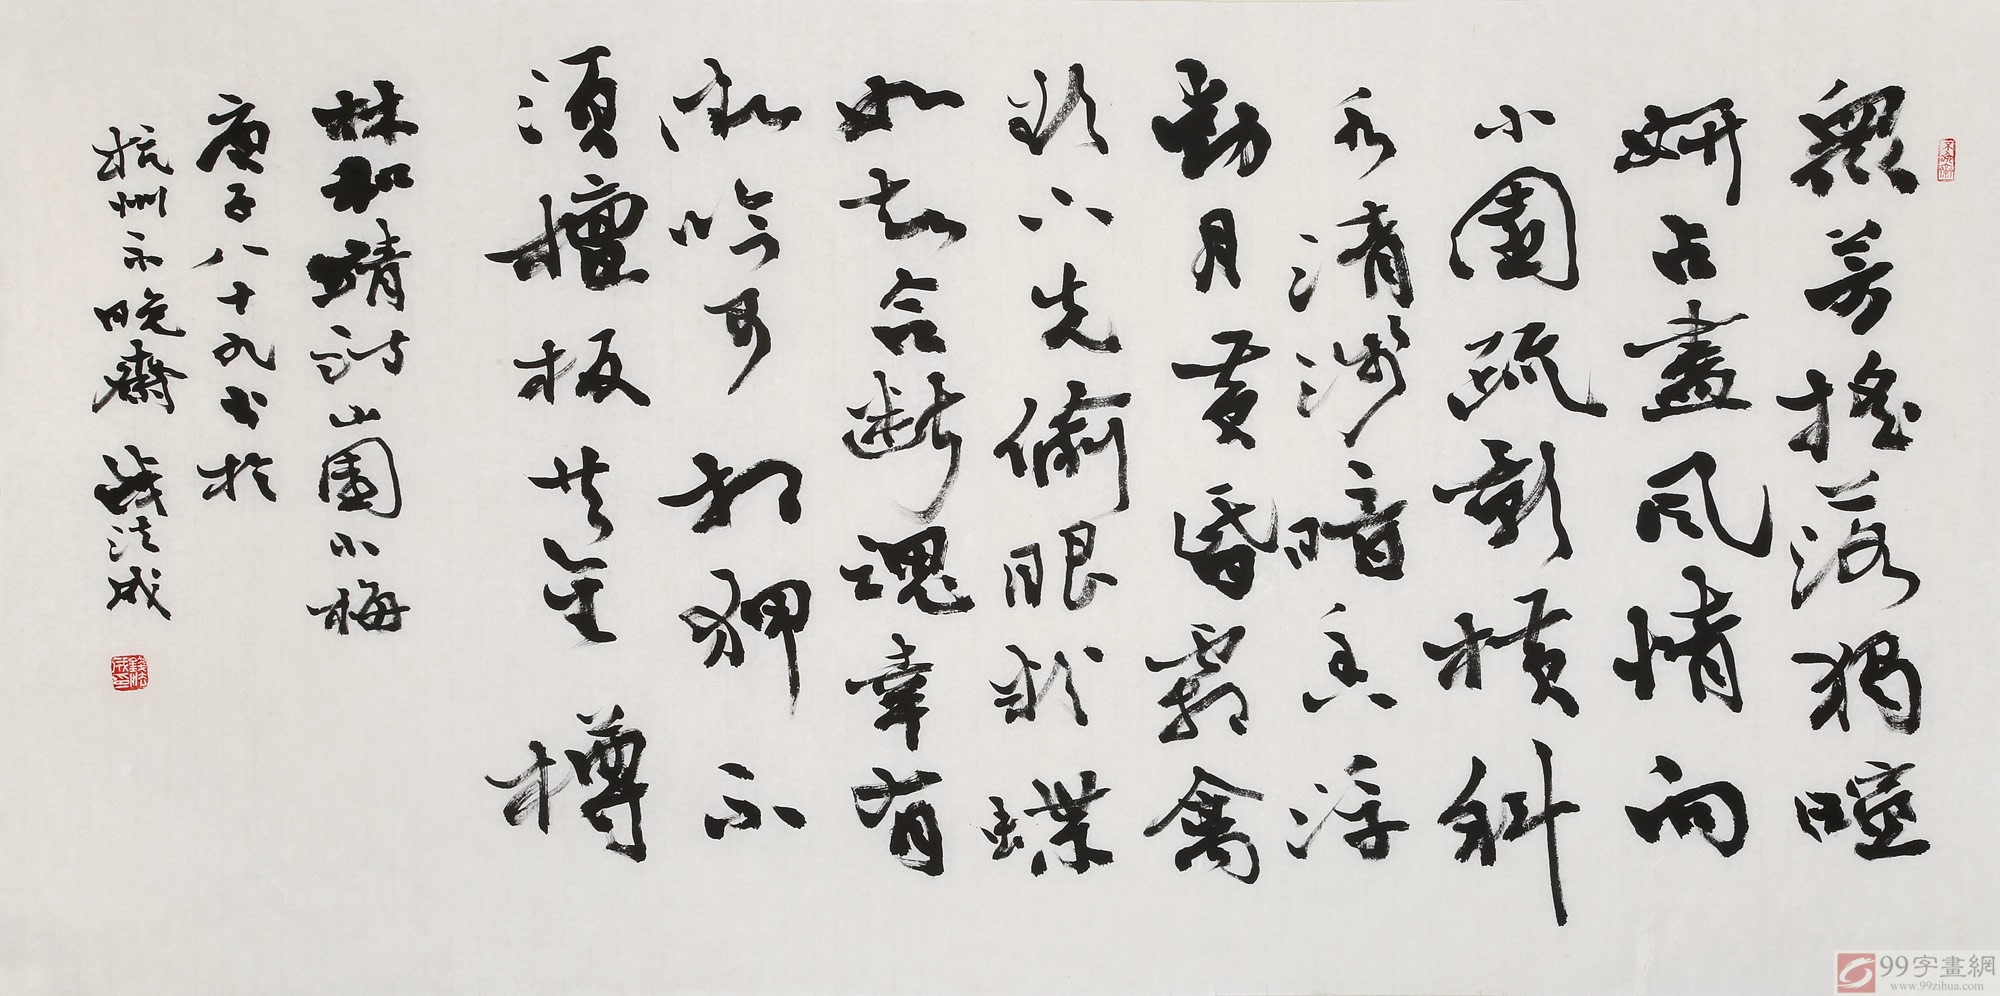 眾芳搖落獨喧
妍占盡風情向
小園疏影橫斜
水清淺暗香浮
動月黃昏霜禽
欲下先偷眼粉蝶
如知合斷魂幸有
微吟可相狎不
須檀板共金樽
林和靖詩山園小梅
庚子八十九書於
杭州不晚齋 錢法成
不晚齋
錢法成印
99字畫網
www.99zihua.com